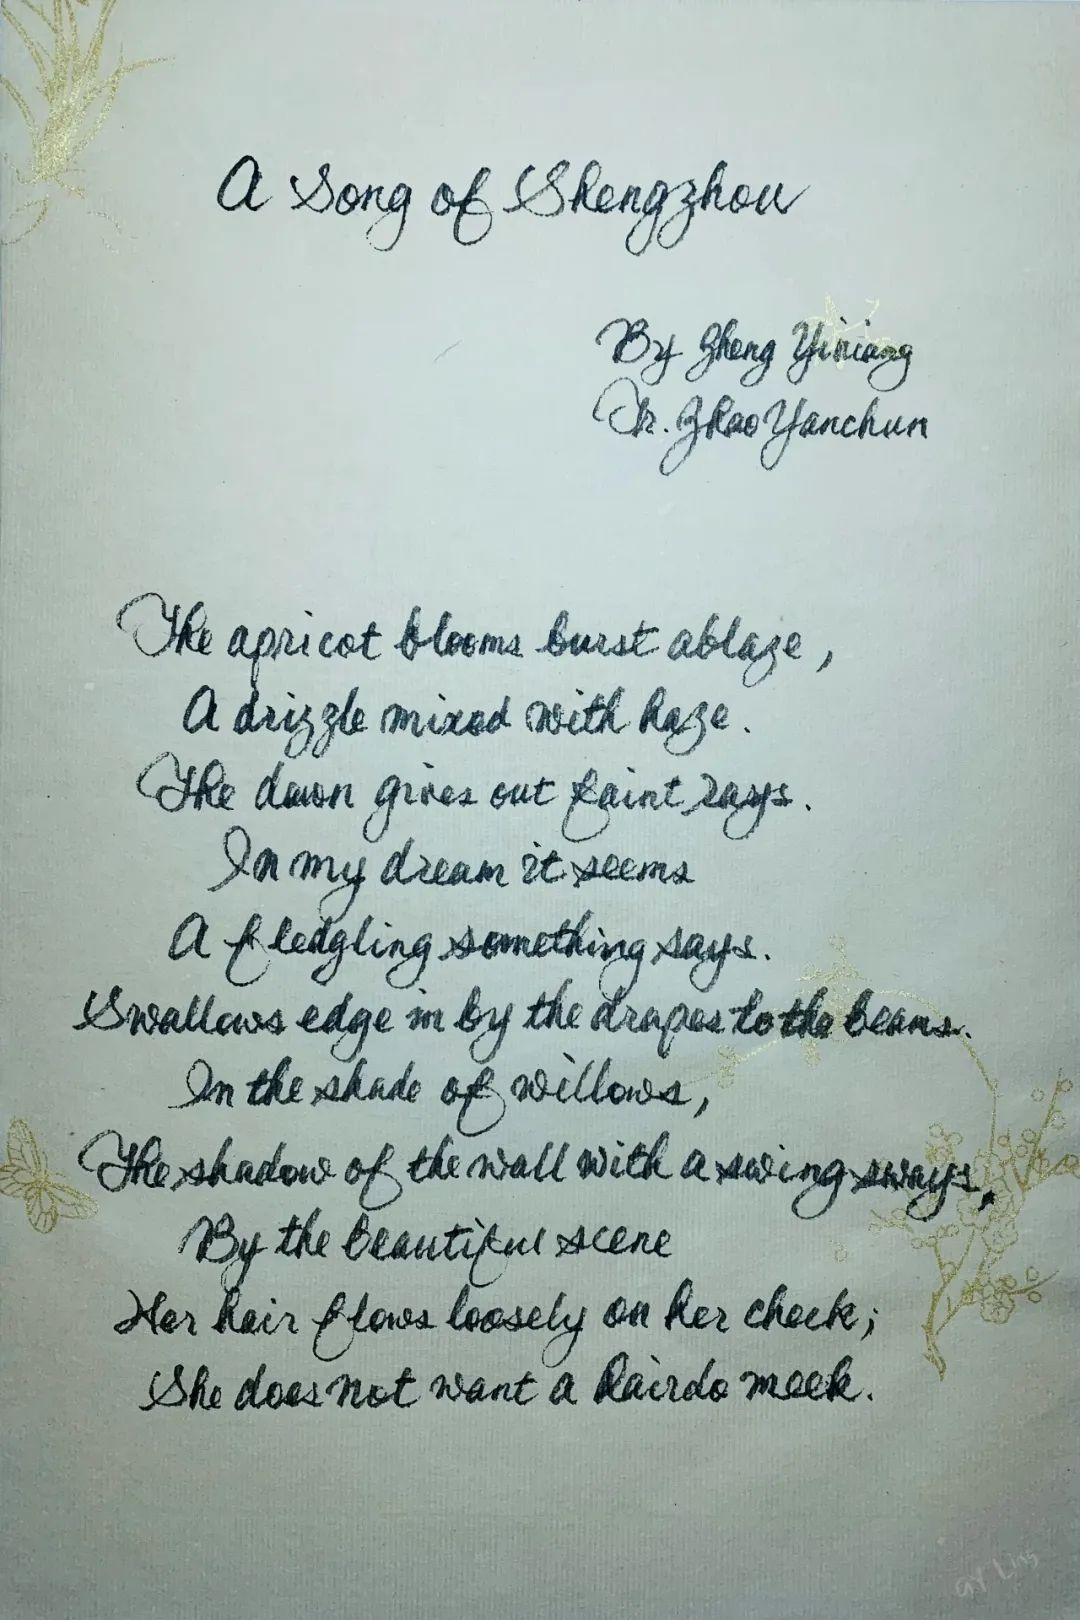 A Song of Shengzhou
By Zheng Yiniang
Tr. Zhao Yanchun
The apricot blooms burst ablaze,
A drizzle mixed with haze.
The dawn gives out faint rays.
In my dream it seems
A fledgling something says.
Swallows edge in by the drapes to the beams.
In the shade of willows,
The shadow of the wall with a swing sways,
By the beautiful scene
Her hair flows loosely on her cheek;
She does not want a hairdo meek.
GY Ling